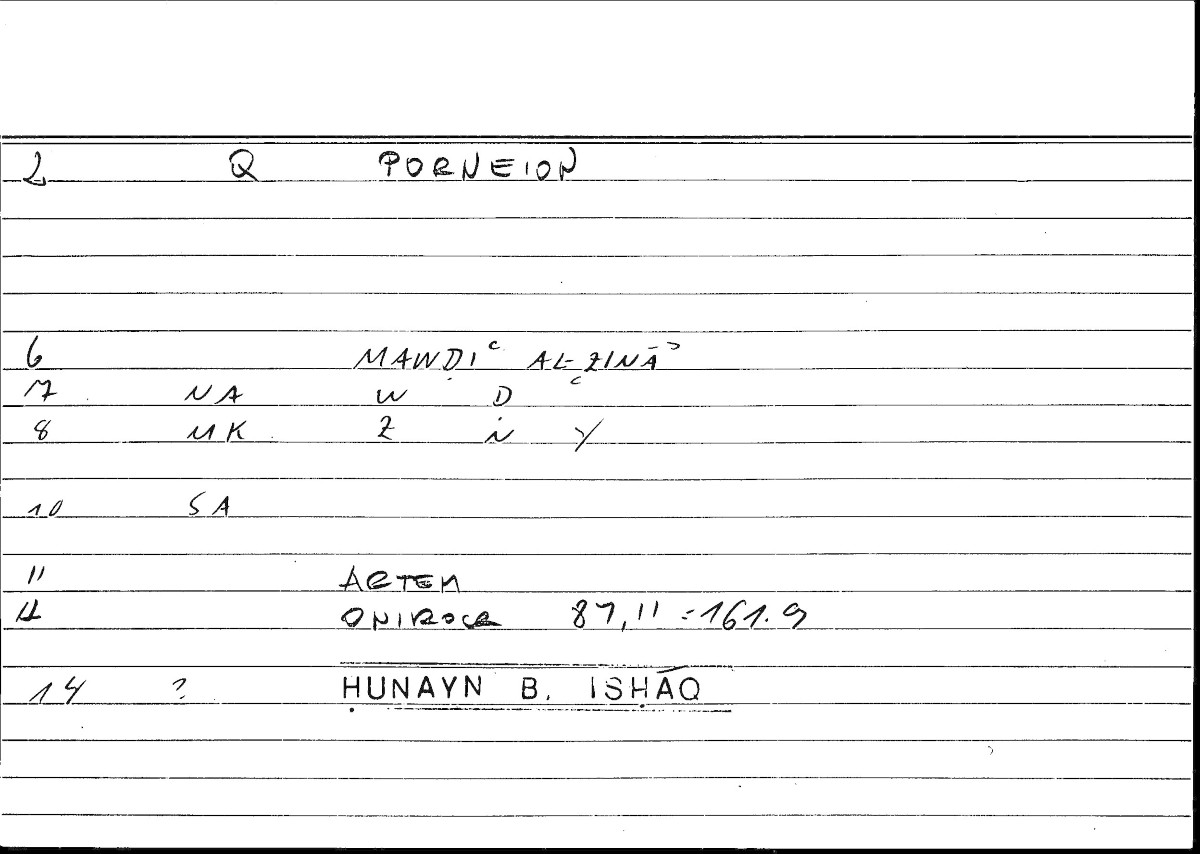 2 Q PORNEION
6 MAWḌIʿ AL-ZINĀʾ
7 NA W D
8 MK Z N Y
10 SA
11 ARTEM
12 ONIROCR 87,11 = 161.9
14 ? ḤUNAYN B. ISḤĀQ